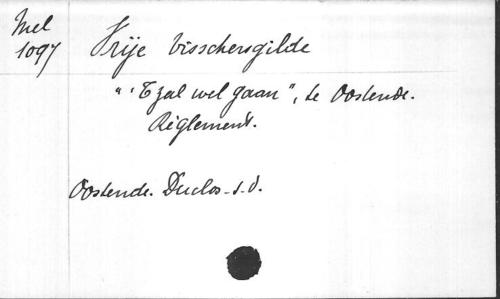 Mel
1097
Vrije Visschersgilde
"'t Zal wel gaan", te Oostende.
Règlement.
Oostende. Duclos - s.d.